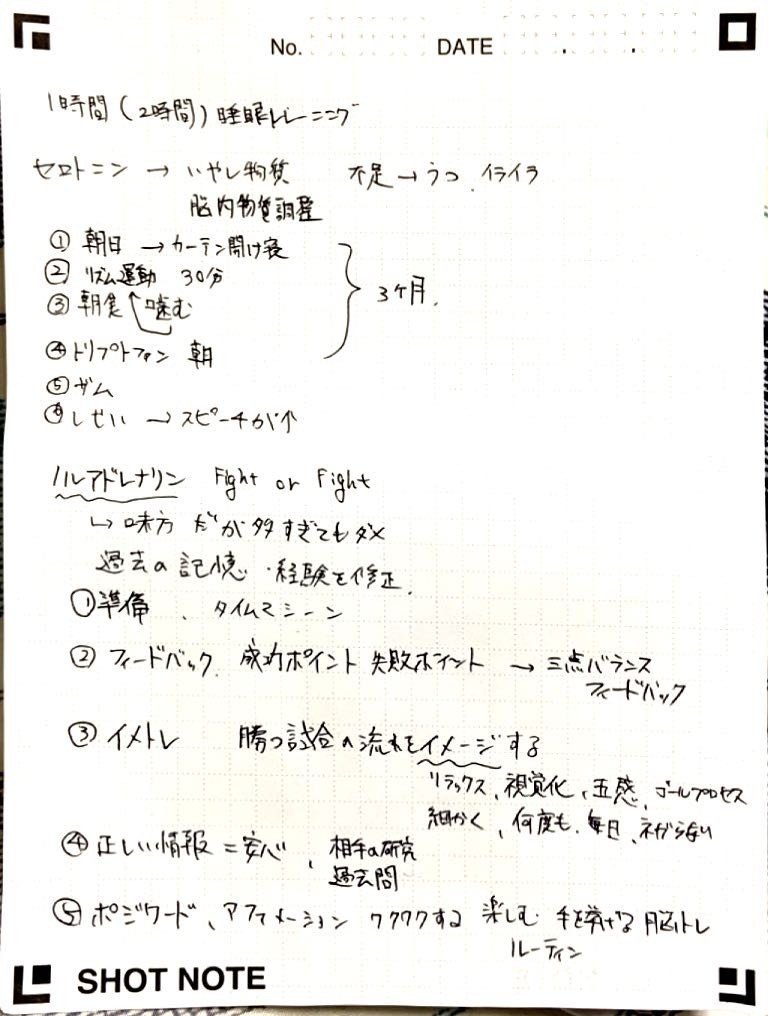 No. DATE . .
1時間（2時間）睡眠トレーニング
セロトニン → いやし物質 不足→うつ、イライラ
脳内物質調整
① 朝日 → カーテン開け寝
② リズム運動 30分
③ 朝食 噛む
3ヶ月.
④ トリプトファン 朝
⑤ ガム
⑥ しせい → スピーチが↑
ノルアドレナリン Fight or Flight
↳ 味方 だが多すぎてもダメ
過去の記憶・経験を修正.
① 準備 、タイムマシーン
② フィードバック. 成功ポイント 失敗ポイント → 三点バランス
フィードバック
③ イメトレ 勝つ試合の流れをイメージする
リラックス、視覚化、五感、ゴールプロセス
細かく、何度も、毎日、ネガらない
④ 正しい情報 = 安心 、相手の研究
過去問
⑤ ポジワード、アファメーション ワクワクする 楽しむ 手を挙げる 脳トレ
ルーティン
SHOT NOTE